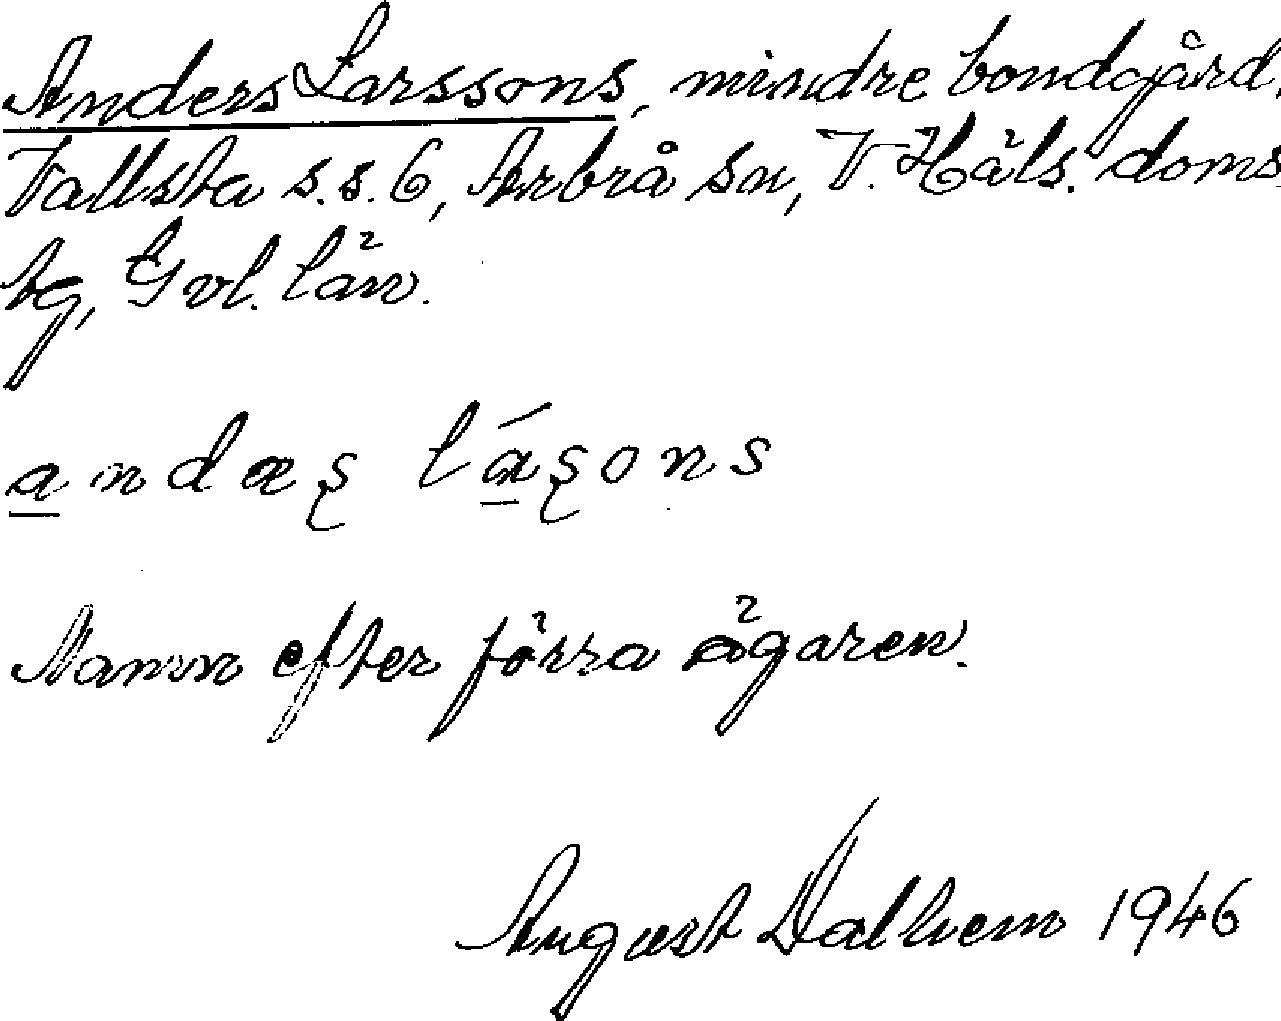 Anders Larssons, mindre bondgård,
Vallsta s.s. 6, Arbrå sn, V. Häls. doms.
tg, Gvl. län.
andæʂ lá̱ʂons
Namn efter förra ägaren.
August Dalhem 1946